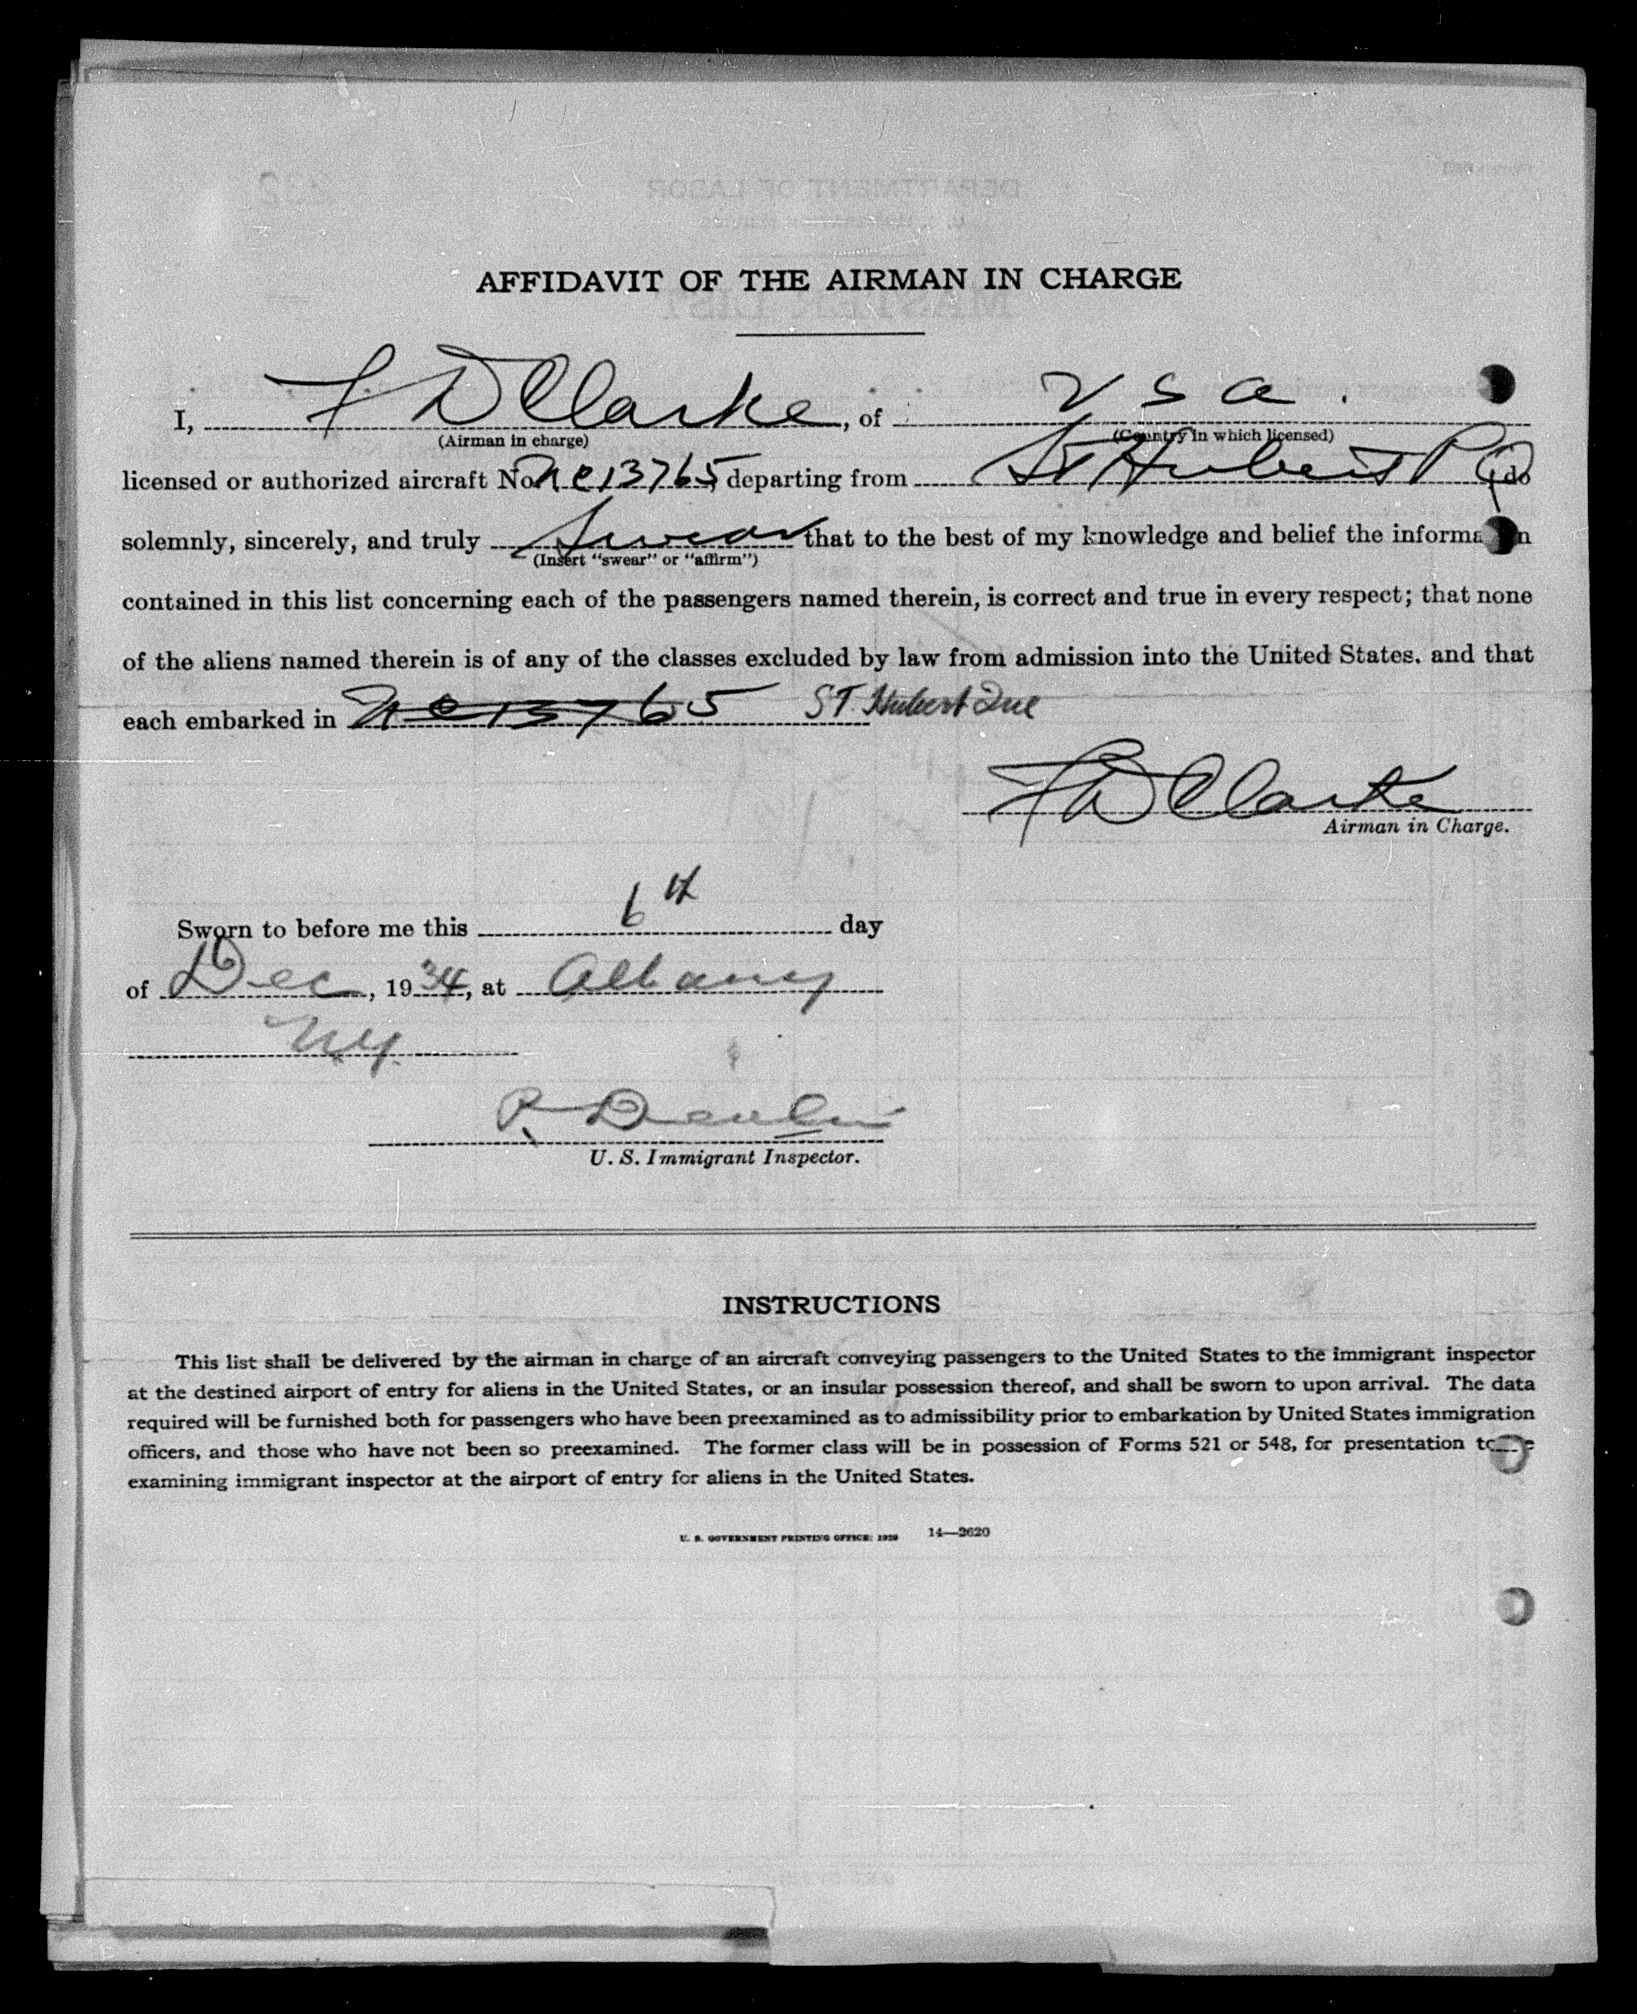 AFFIDAVIT OF THE AIRMAN IN CHARGE
I, F D Clarke, of U S A.
(Airman in charge) (Country in which licensed)
licensed or authorized aircraft No. NC13765, departing from St Hubert P Q do
solemnly, sincerely, and truly Swear that to the best of my knowledge and belief the information
(Insert "swear" or "affirm")
contained in this list concerning each of the passengers named therein, is correct and true in every respect; that none
of the aliens named therein is of any of the classes excluded by law from admission into the United States, and that
each embarked in NC13765 ST. Hubert Que
F D Clarke
Airman in Charge.
Sworn to before me this 6th day
of Dec, 1934, at Albany
NY.
P. Devlin
U. S. Immigrant Inspector.
INSTRUCTIONS
This list shall be delivered by the airman in charge of an aircraft conveying passengers to the United States to the immigrant inspector
at the destined airport of entry for aliens in the United States, or an insular possession thereof, and shall be sworn to upon arrival. The data
required will be furnished both for passengers who have been preexamined as to admissibility prior to embarkation by United States immigration
officers, and those who have not been so preexamined. The former class will be in possession of Forms 521 or 548, for presentation to
examining immigrant inspector at the airport of entry for aliens in the United States.
U. S. GOVERNMENT PRINTING OFFICE: 1929 14—2620